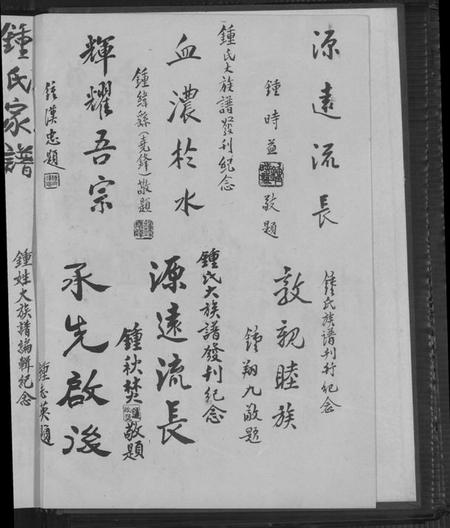 源遠流長
鍾時益
敬題
鍾氏大族譜發刊紀念
血濃於水
鍾緯縣(堯鋒)敬題
輝耀吾宗
鍾漢忠題
鍾氏族譜刊行紀念
敦親睦族
鍾翔九敬題
鍾氏大族譜發刊紀念
源遠流長
鍾秋焚
敬題
承先啟後
鍾志英題
鍾氏家譜
鍾姓大族譜編輯紀念